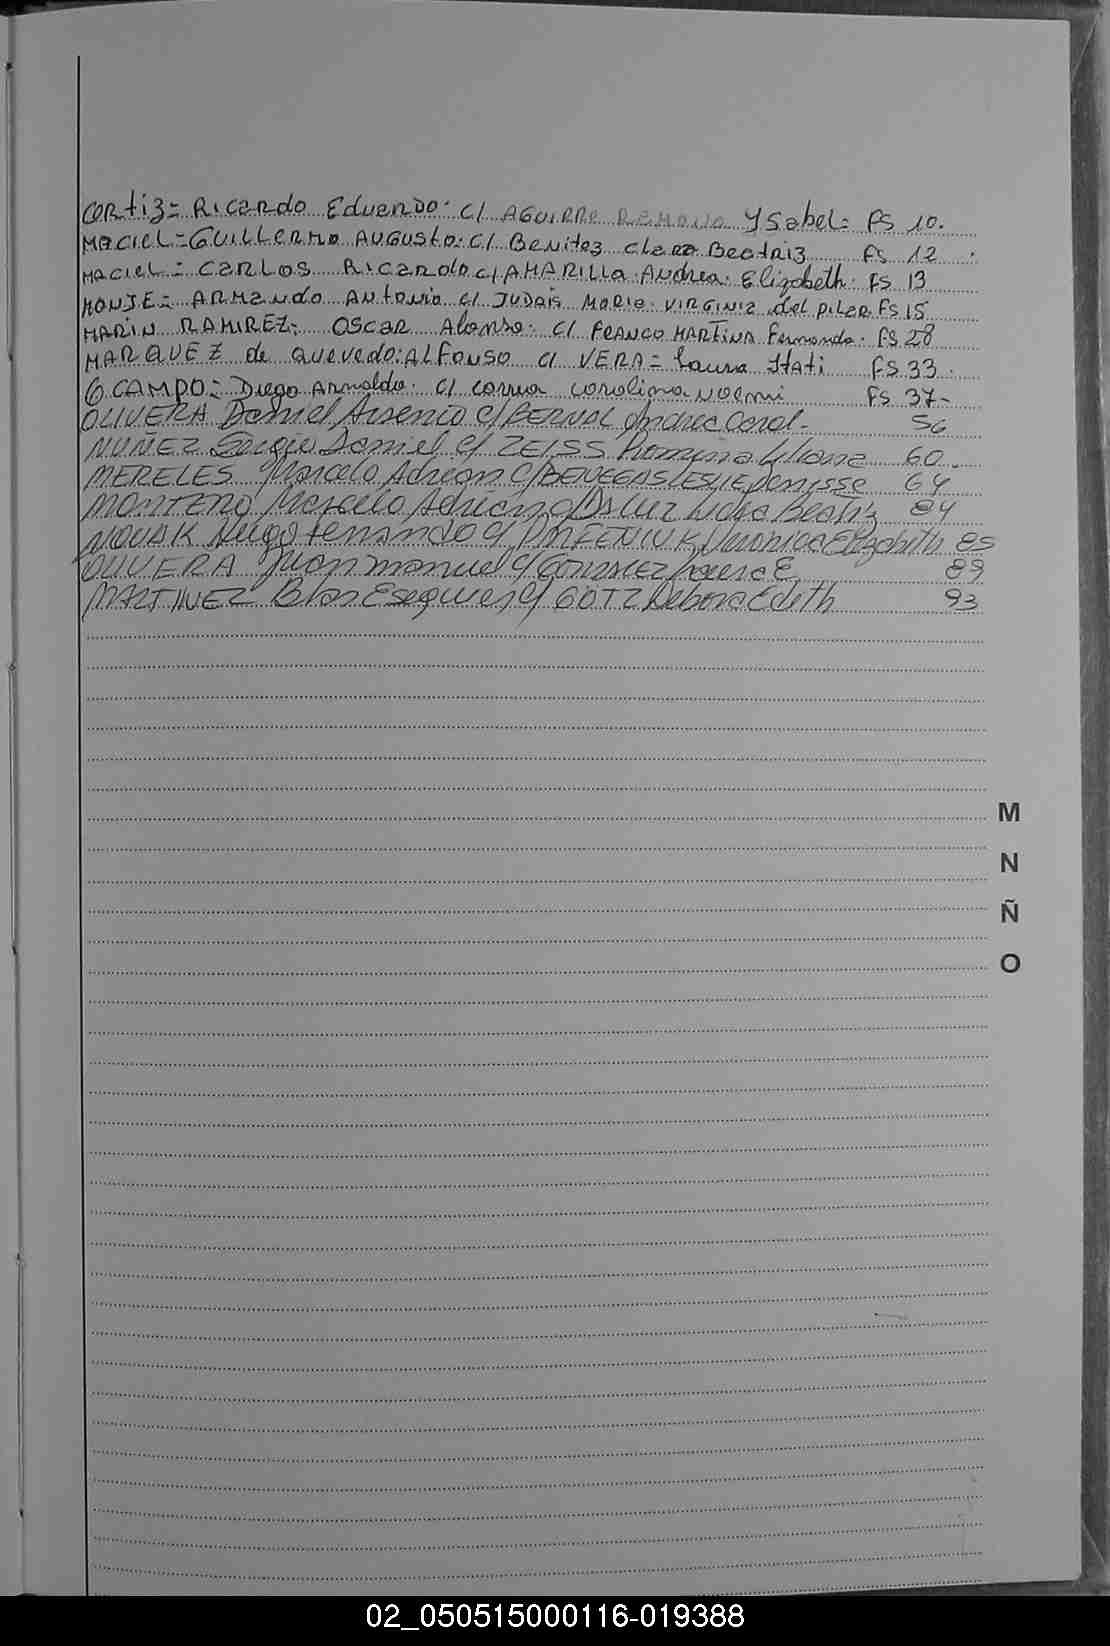 ORtiz= Ricardo Eduardo. C/ AGUIRRE RAMONA YSabel= FS 10.
MACIEL=GUILLERMO AUGUSto. C/ Benitez Clara Beatriz FS 12
MACIEL= CARLOS Ricardo C/ AMARILLA. Andrea. Elizabeth. FS 13
MONJE= ARMANdo ANtonio C/ JUDAIS MARIA. VIRGINIA del PILAR FS 15
MARIN RAMIREZ= OSCAR Alonso. C/ FRANCO MARTINA Fernanda. FS 28
MARQUEZ de Quevedo: ALFONSO C/ VERA= Laura Itati FS 33.
OCAMPO= Diego Arnoldo. C/ Correa Carolina Noemi FS 37-
OLIVERA Daniel Arsenio C/ BERNAL Andrea Carol. 56
NUÑEZ Sergio Daniel C/ ZEISS Romina Liliana 60.
MERELES Marcelo Adrean C/ BENEGAS LESLIE Denisse 64
MONTERO Marcelo Adriano C/ Da LUZ Lidia Beatriz 84
NOVAK Hugo Fernando C/ Veronica Elizabeth 85
OLIVERA Juan Manuel C/ GONZALEZ E. 89
MARTINEZ Blas Esequiel C/ GOTZ Debora Edith 93
M
N
Ñ
O
02_050515000116-019388